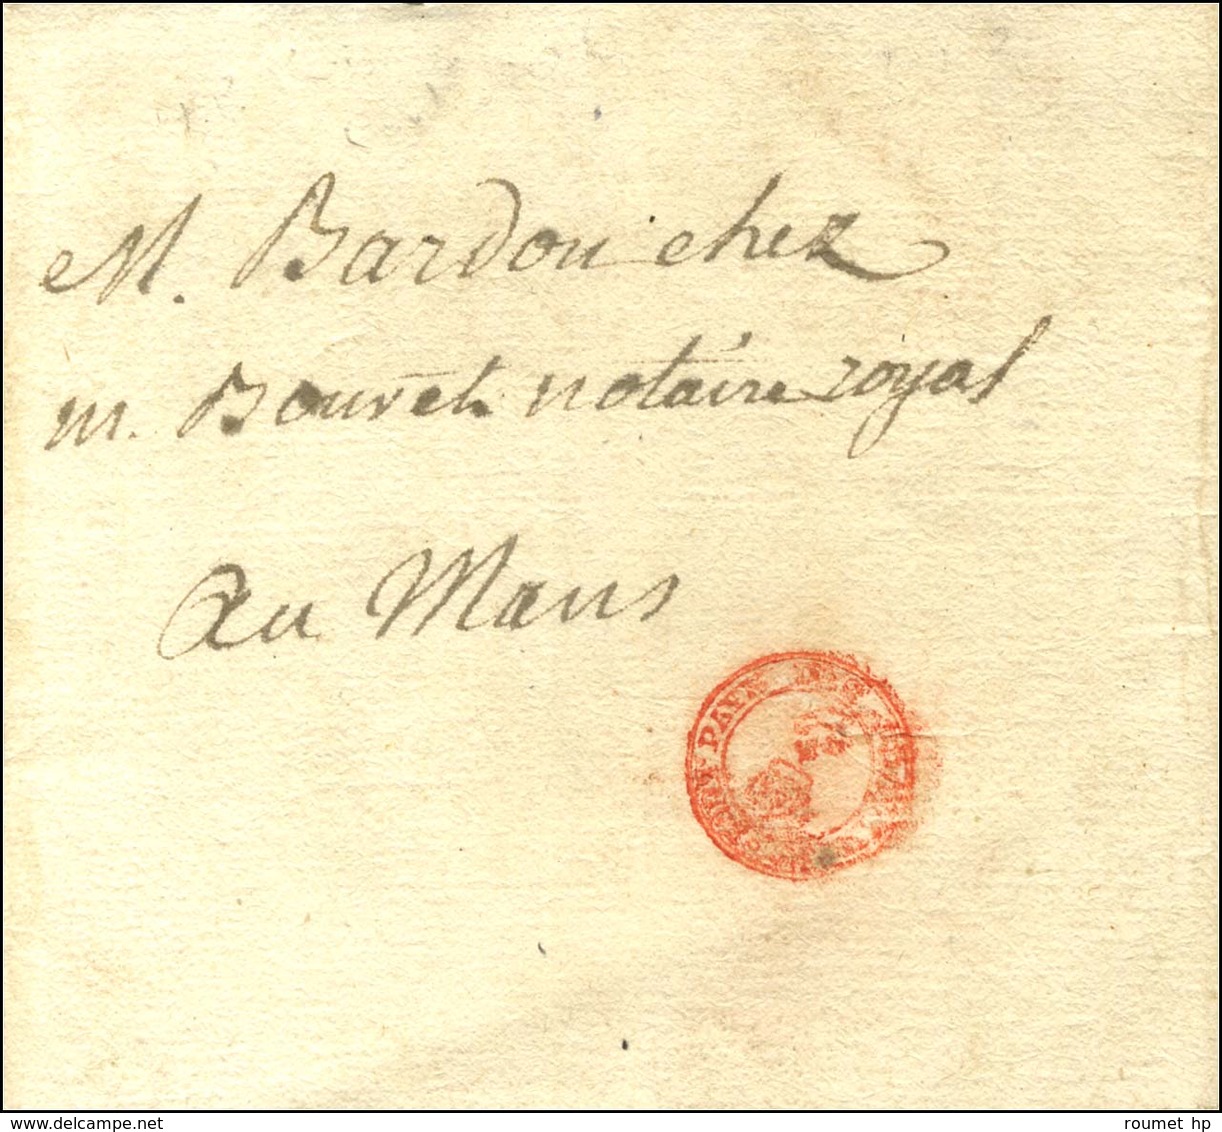 M. Bardou chez
m. Bouvet notaire royal
Au Mans
delcampe.net
roumet hp